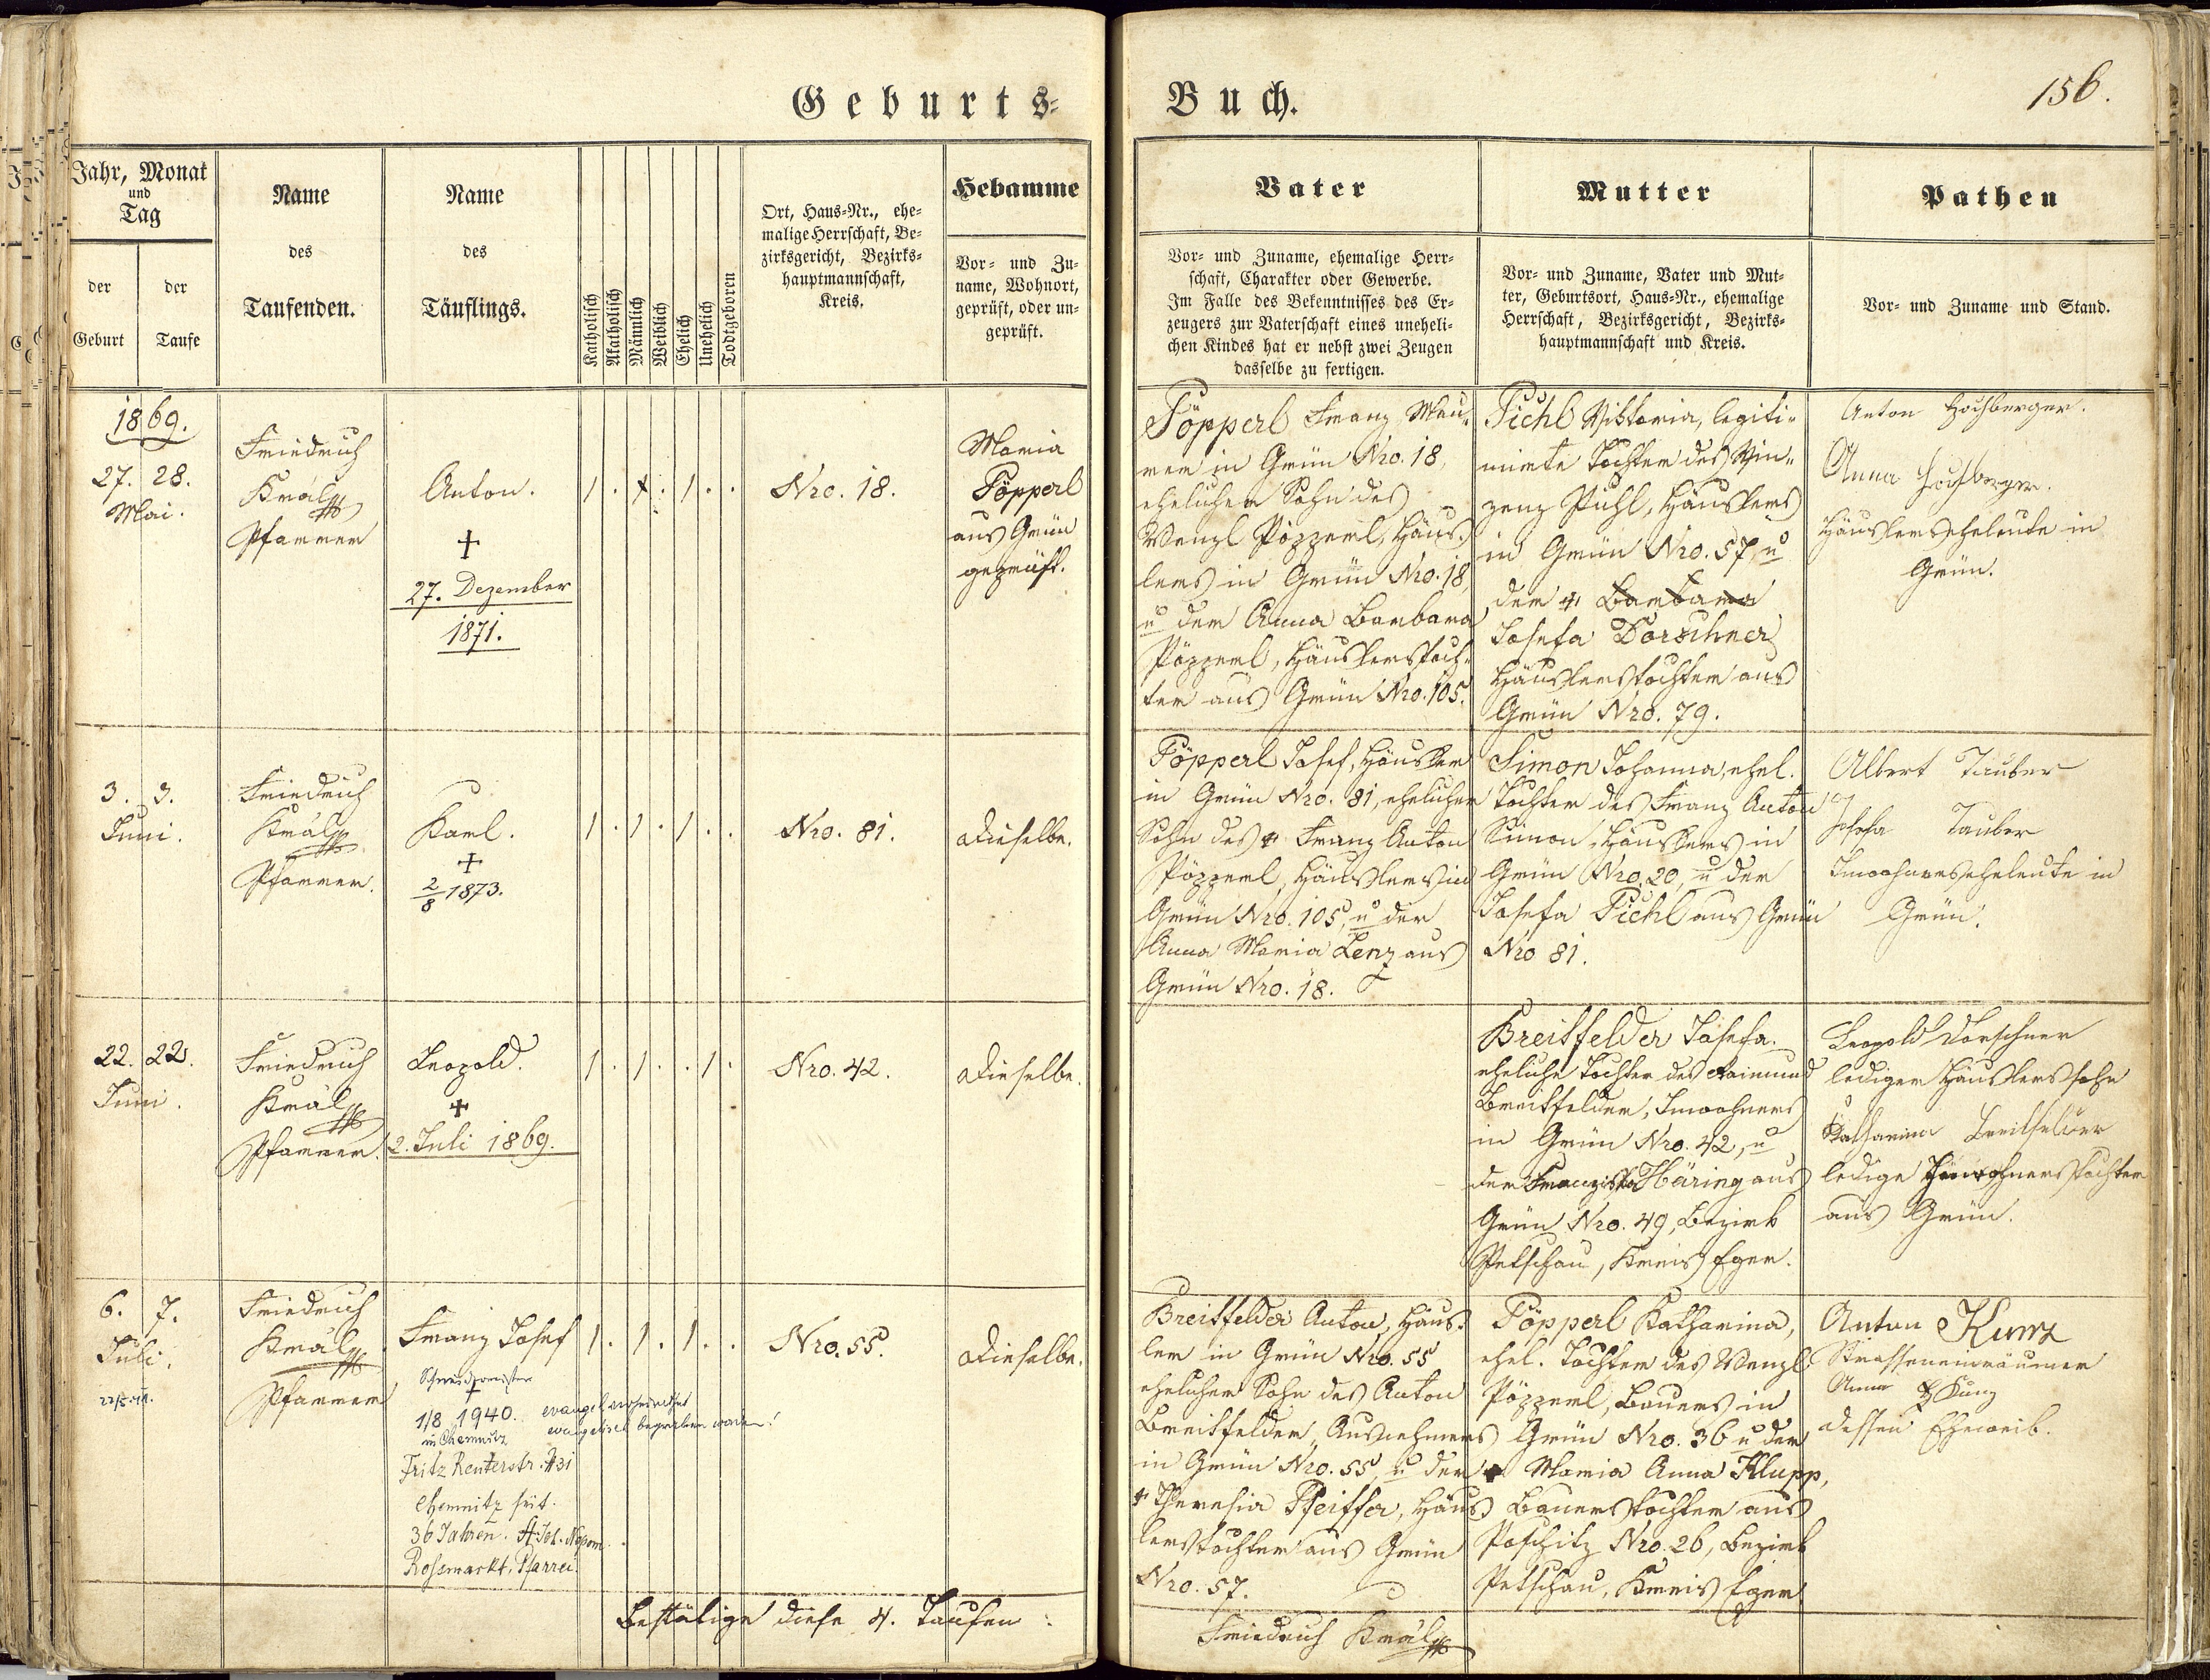 Geburts-
Buch.
156.
Jahr, Monat
und
Tag
der
Geburt
der
Taufe
Name
des
Taufenden.
Name
des
Täuflings.
Katholisch
Akatholisch
Männlich
Weiblich
Ehelich
Unehelich
Todtgeboren
Ort, Haus-Nr., ehe-
malige Herrschaft, Be-
zirksgericht, Bezirks-
hauptmannschaft,
Kreis.
Hebamme
Vor- und Zu-
name, Wohnort,
geprüft, oder un-
geprüft.
Vater
Vor- und Zuname, ehemalige Herr-
schaft, Charakter oder Gewerbe.
Im Falle des Bekenntnisses des Er-
zeugers zur Vaterschaft eines uneheli-
chen Kindes hat er nebst zwei Zeugen
dasselbe zu fertigen.
Mutter
Vor- und Zuname, Vater und Mut-
ter, Geburtsort, Haus-Nr., ehemalige
Herrschaft, Bezirksgericht, Bezirks-
hauptmannschaft und Kreis.
Pathen
Vor- und Zuname und Stand.
1869.
27. 28.
Mai.
Friedrich
Král
Pfarrer
Anton.
+
27. Dezember
1871.
Nro. 18.
Maria
Pöpperl
aus Grün
geprüft.
Pöpperl Franz Mau-
rer in Grün Nro. 18,
ehelicher Sohn des
Wenzl Pöpperl, Häus-
lers in Grün Nro. 18,
u der Anna Barbara
Pöpperl, Häuslerstoch-
ter aus Grün Nro. 105.
Pichl Viktoria, legiti-
mirte Tochter des Vin-
zenz Pichl, Häuslers
in Grün Nro. 57, u
der + Barbara
Josefa Dorschner
Häuslerstochter aus
Grün Nro. 79.
Anton Hochberger.
Anna Hochberger.
Häuslerseheleute in
Grün.
3. 3.
Juni.
Friedrich
Král
Pfarrer.
Karl.
+
2/8 1873.
Nro. 81.
Dieselbe.
Pöpperl Josef, Häusler
in Grün Nro. 81, ehelicher
Sohn des + Franz Anton
Pöpperl, Häuslers in
Grün Nro. 105, u der
Anna Maria Lenz aus
Grün Nro. 18.
Simon Johanna, ehel.
Tochter des Franz Anton
Simon, Häuslers in
Grün Nro. 20, u der
Josefa Pichl aus Grün
Nro 81.
Albert Tauber
Josefa Tauber
Inwohnerseheleute in
Grün.
22. 22.
Juni.
Friedrich
Král
Pfarrer.
Leopold.
+
2. Juli 1869.
Nro. 42.
Dieselbe.
Breitfelder Josefa.
eheliche Tochter des Raimund
Breitfelder, Inwohners
in Grün Nro. 42, u
der Franziska Häring aus
Grün Nro. 49, Bezirk
Petschau, Kreis Eger.
Leopold Dorschner
lediger Häuslerssohn
Katharina Breitfelder
ledige Inwohnerstochter
aus Grün.
6. 7.
Juli.
Friedrich
Král
Pfarrer
Franz Josef
+
1/8 1940. evangel.
in Chemnitz evangelisch begraben worden!
Fritz Reuterstr. 31
Chemnitz seit.
36 Jahren. St. Joh. Nepom.
Rossmarkt. Pfarrei.
Nro. 55.
Dieselbe.
Breitfelder Anton, Häus-
ler in Grün Nro. 55
ehelicher Sohn des Anton
Breitfelder, Ausnehmers
in Grün Nro. 55, u der
+ Theresia Pfeiffer, Häus-
lerstochter aus Grün
Nro. 57.
Pöpperl Katharina,
ehel. Tochter des Wenzl
Pöpperl, Bauers in
Grün Nro. 36 u der
+ Maria Anna Klupp,
Bauerstochter aus
Poschitz Nro. 26, Bezirk
Petschau, Kreis Eger
Anton Kunz
Strasseneinräumer
Anna Kunz
dessen Eheweib.
Bestätige diese 4. Taufen:
Friedrich Král